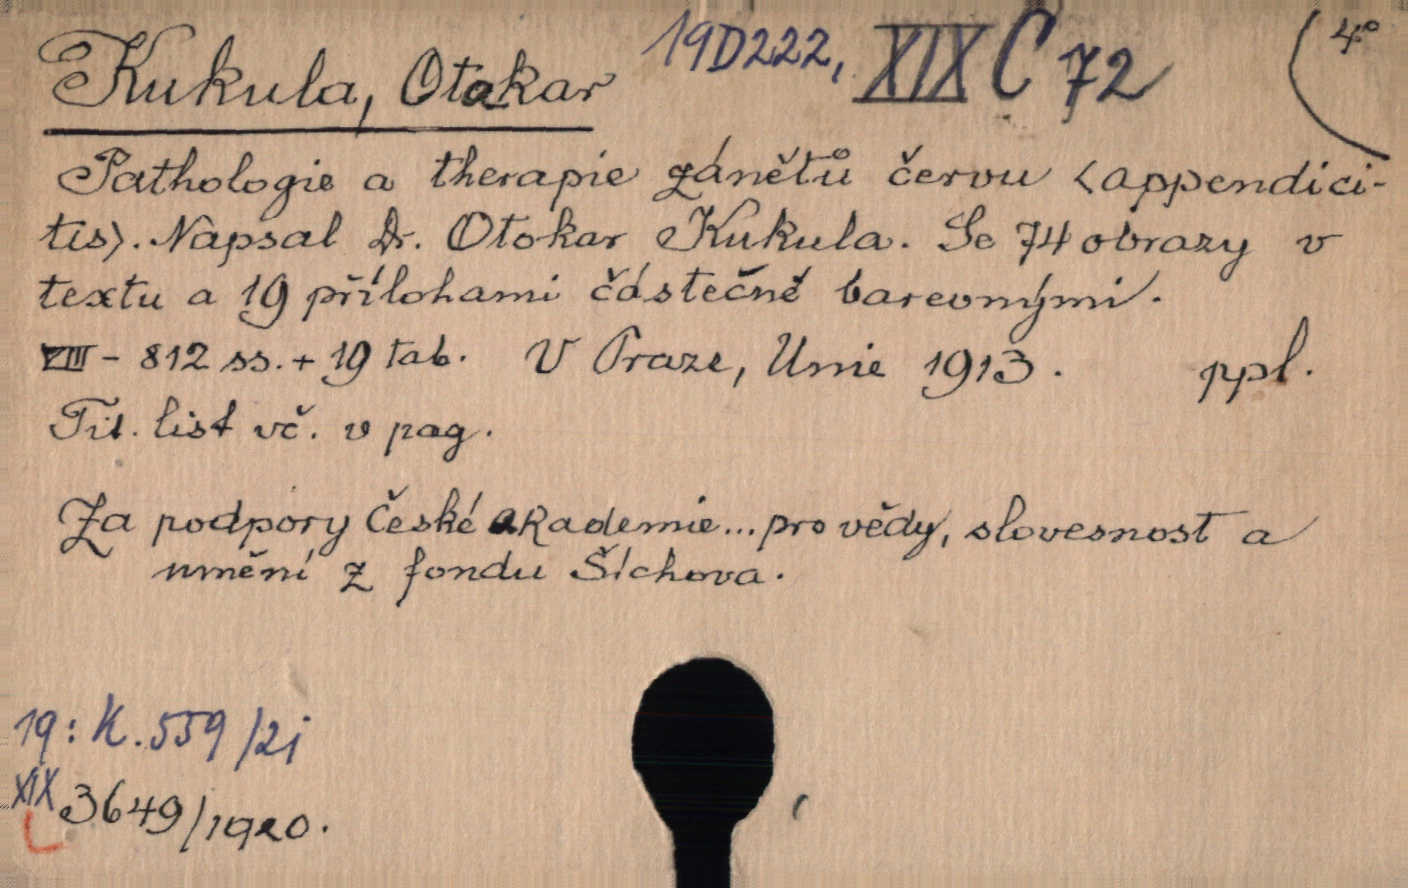 Kukula, Otakar 19D222, XIX C 72 4°
Pathologie a therapie zánětů červu <appendici-
tis>. Napsal Dr. Otokar Kukula. Se 74 obrazy v
textu a 19 přílohami částečně barevnými.
VIII - 812 ss. + 19 tab. V Praze, Unie 1913. ppl.
Tit. list vč. v pag.
Za podpory České akademie... pro vědy, slovesnost a
umění z fondu Šíchova.
19: K. 559/21
XIX 3649/1920.